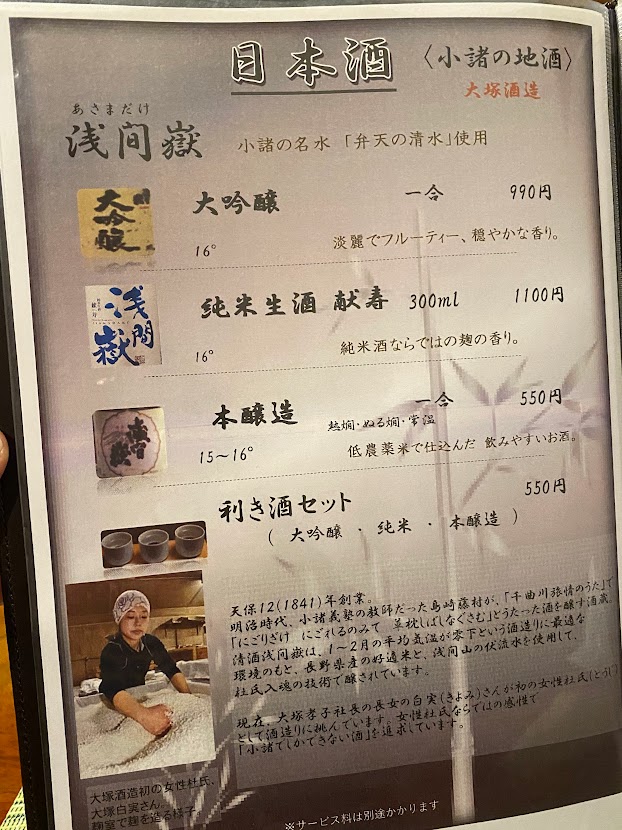 日本酒 〈小諸の地酒〉
大塚酒造
あさまだけ
浅間嶽 小諸の名水 「弁天の清水」使用
大吟醸
大吟醸 一合 990円
16° 淡麗でフルーティー、穏やかな香り。
浅間嶽
純米生酒 献寿 300ml 1100円
16° 純米酒ならではの麹の香り。
本醸造 一合 550円
熱燗・ぬる燗・常温
15~16° 低農薬米で仕込んだ 飲みやすいお酒。
利き酒セット 550円
( 大吟醸 ・ 純米 ・ 本醸造 )
天保12(1841)年創業。
明治時代、小諸義塾の教師だった島崎藤村が、「千曲川旅情のうた」で
「にごりざけ にごれるのみて 草枕(しばしなぐさむ)」とうたった酒を醸す酒蔵。
清酒浅間嶽は、1~2月の平均気温が零下という酒造りに最適な
環境のもと、長野県産の好適米と、浅間山の伏流水を使用して、
杜氏入魂の技術で醸されています。
現在、大塚孝子社長の長女の白実(きよみ)さんが初の女性杜氏(とうじ)
として酒造りに挑んでいます。女性杜氏ならではの感性で
「小諸でしかできない酒」を追求しています。
大塚酒造初の女性杜氏、
大塚白実さん。
麹室で麹を造る様子
※サービス料は別途かかります